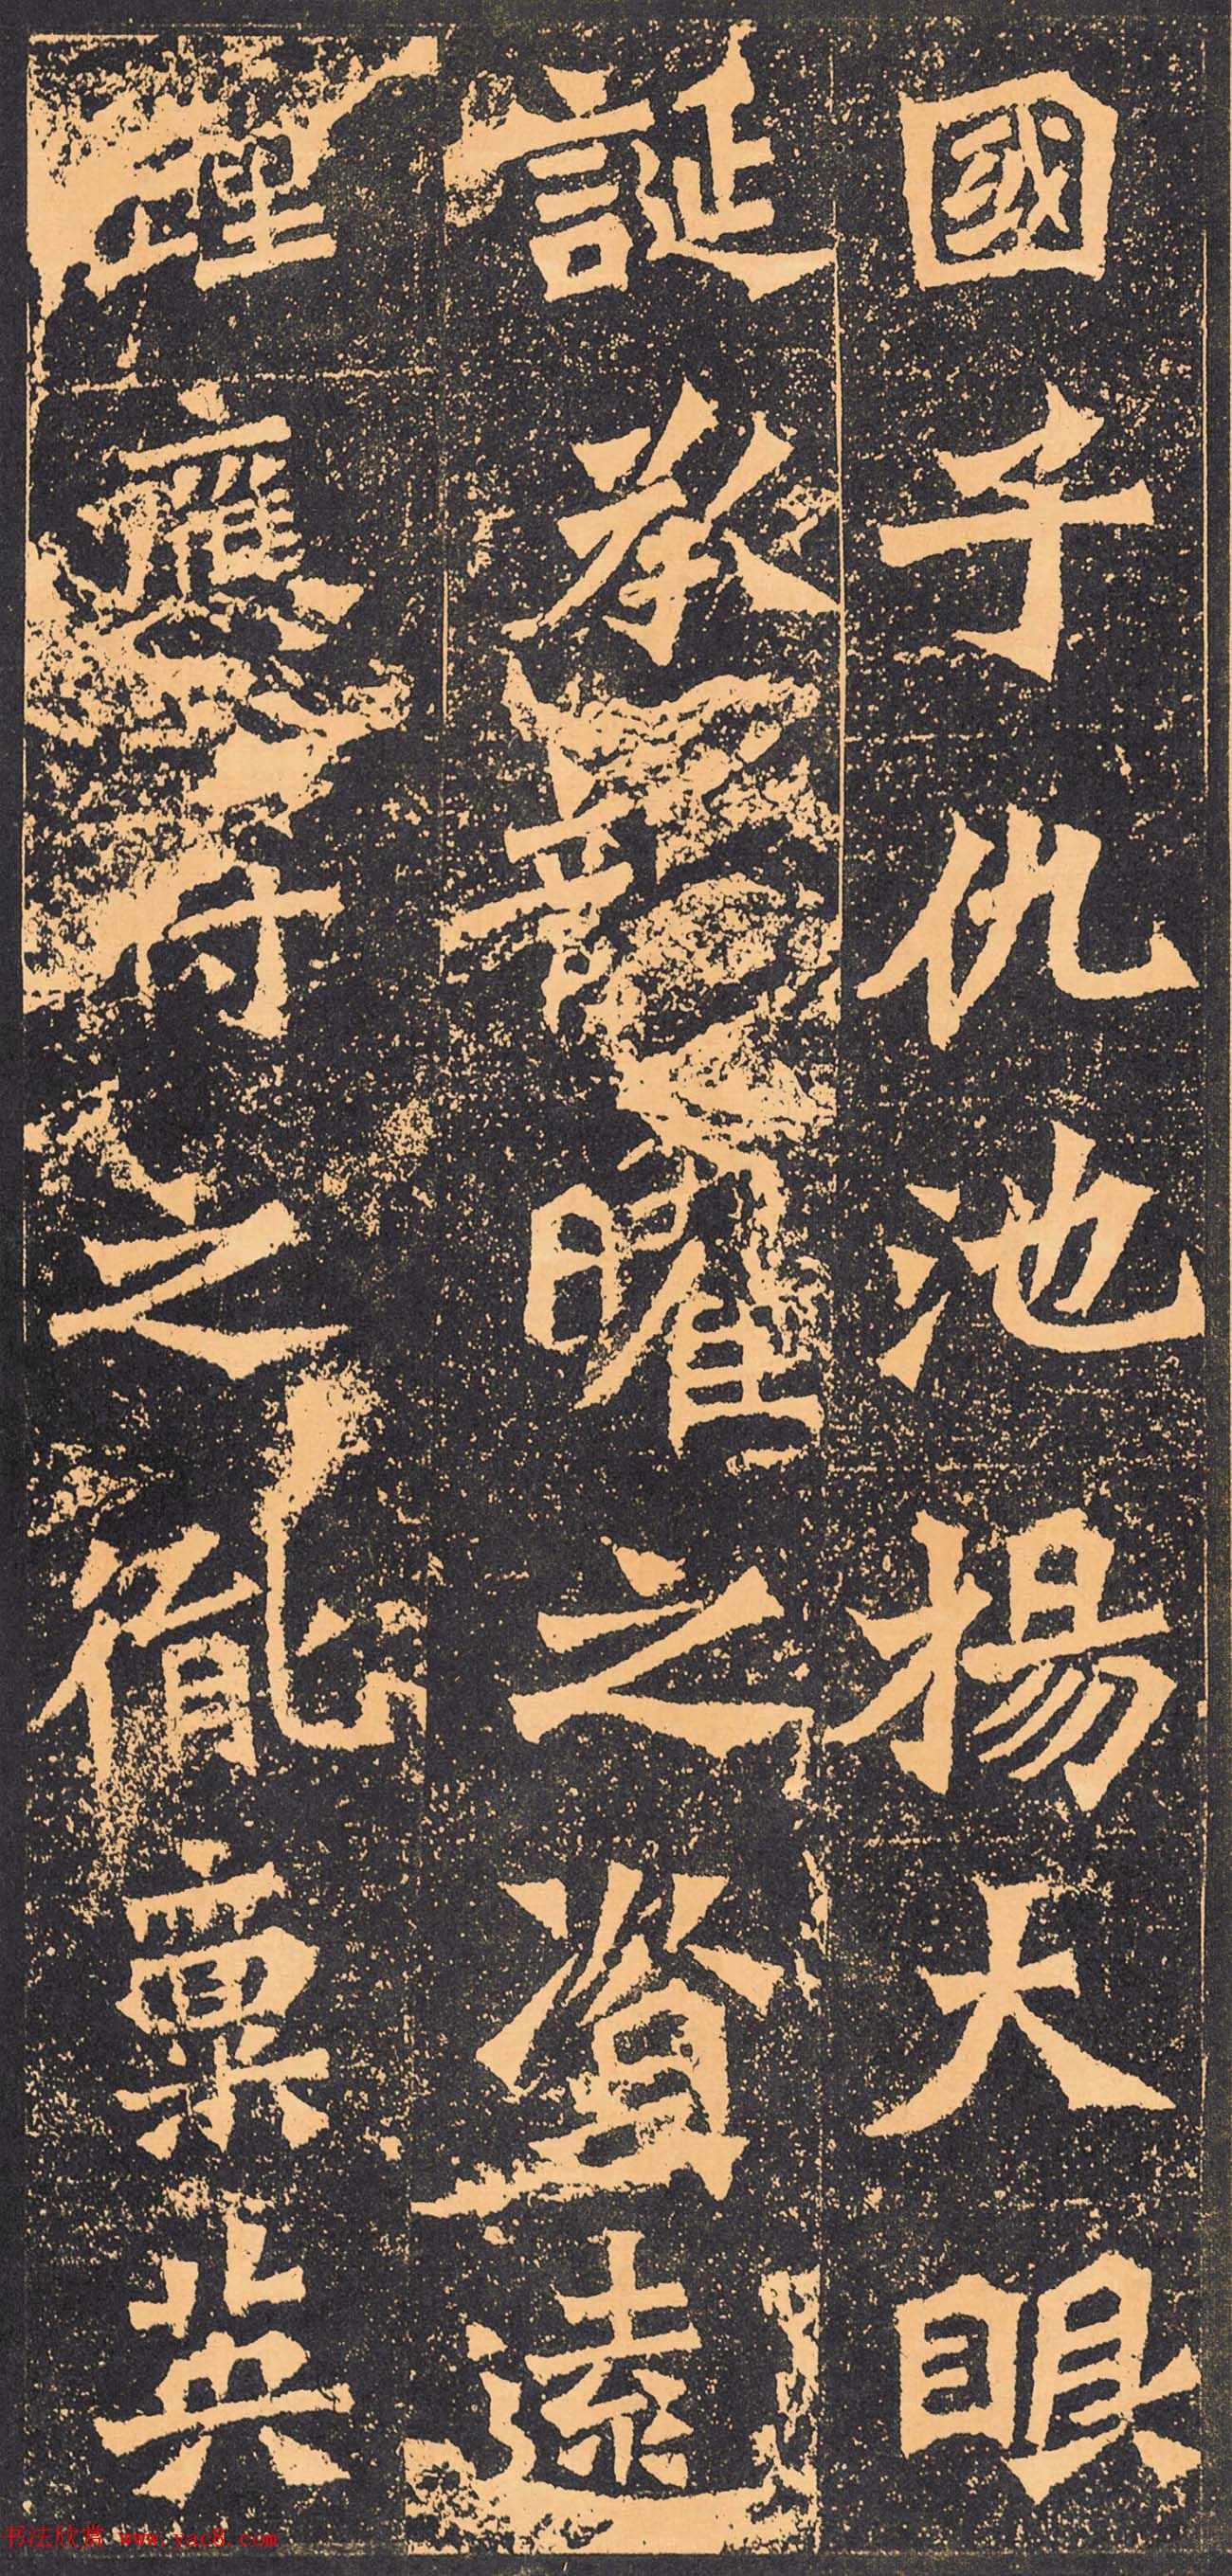 國子仇池揚大眼
誕承龍曜之資遠
踵應符之胤稟英
书法欣赏 www.yac8.com